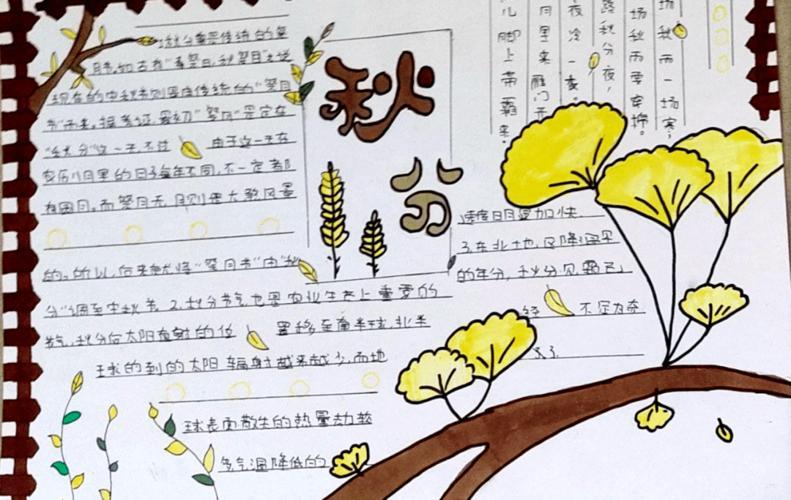 秋分
秋分曾是传统的"祭
月节",如古有"春祭日,秋祭月"之说
现在的中秋节则是由传统的"祭月
节"而来。据考证,最初"祭月"是定在
"秋分"这一天,不过 由于这一天在
农历八月里的日子每年不同,不一定都
有圆月。而祭月无月则是大煞风景
的。所以,后来就将"祭月节"由"秋
分"调至中秋节。2.秋分节气也是农业生产上重要的
节气,秋分后太阳直射的位 置移至南半球,北半
球的到的太阳辐射越来越少,而地
球表面散失的热量却较
多,气温降低的
速度明显加快。
3.在北地,因降温早
的年份,秋分见霜已
经 不足为奇
了。
场秋雨一场寒;
场秋雨要穿棉。
路秋分夜,
夜冷一夜。
月里来雁门开
儿脚上带霜来。